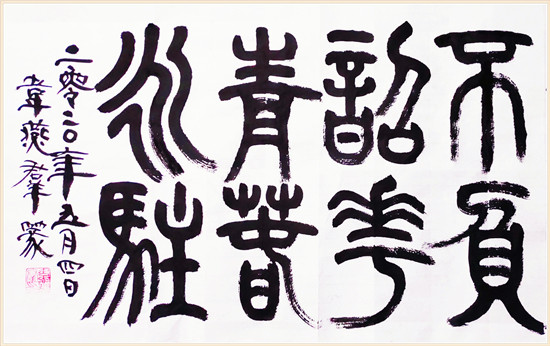 不負
韶華
青春
永駐
二零二〇年五月四日
韋燕群